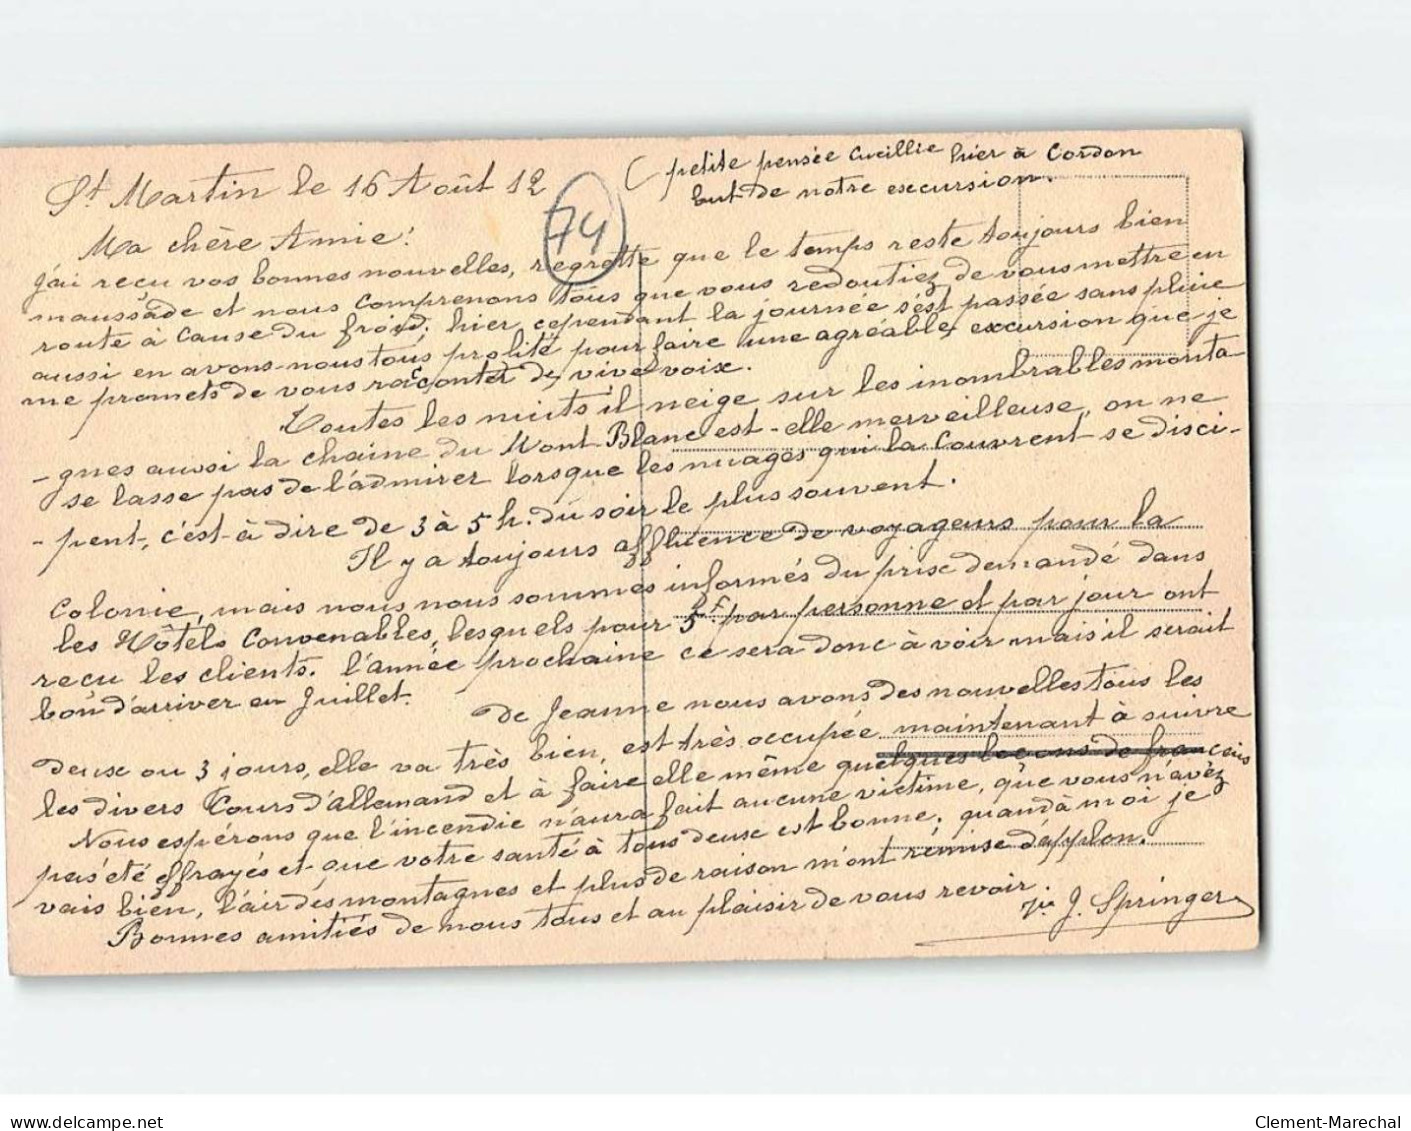 St Martin le 16 Août 12
( petite pensée cueillie hier à Cordon
but de notre excursion.
74
Ma chère Amie !
j'ai reçu vos bonnes nouvelles, regrette que le temps reste toujours bien
maussade et nous comprenons tous que vous redoutiez de vous mettre en
route à cause du froid; hier, cependant la journée s'est passée sans pluie
aussi en avons-nous tous profité pour faire une agréable excursion que je
me promets de vous raconter de vive voix.
Toutes les nuits il neige sur les inombrables monta-
-gnes aussi la chaine du Mont-Blanc est-elle merveilleuse, on ne
se lasse pas de l'admirer lorsque les nuages qui la couvrent se dissi-
-pent, c'est-à-dire de 3 à 5 h. du soir le plus souvent.
Il y a toujours affluence de voyageurs pour la
Colonie, mais nous nous sommes informés du prix demandé dans
les Hôtels convenables, lesquels pour 5f. par personne et par jour ont
reçu les clients. l'année prochaine ce sera donc à voir mais il serait
bon d'arriver en Juillet.
De Jeanne nous avons des nouvelles tous les
deux ou 3 jours, elle va très bien, est très occupée maintenant à suivre
les divers Cours d'allemand et à faire elle même quelques leçons de français
Nous espérons que l'incendie n'aura fait aucune victime, que vous n'avez
pas été effrayés et que votre santé à tous deux est bonne, quand à moi je
vais bien, l'air des montagnes et plus de raison m'ont remise d'applon.
Bonnes amitiés de nous tous et au plaisir de vous revoir.
J. Springer
Clement-Marechal
www.delcampe.net